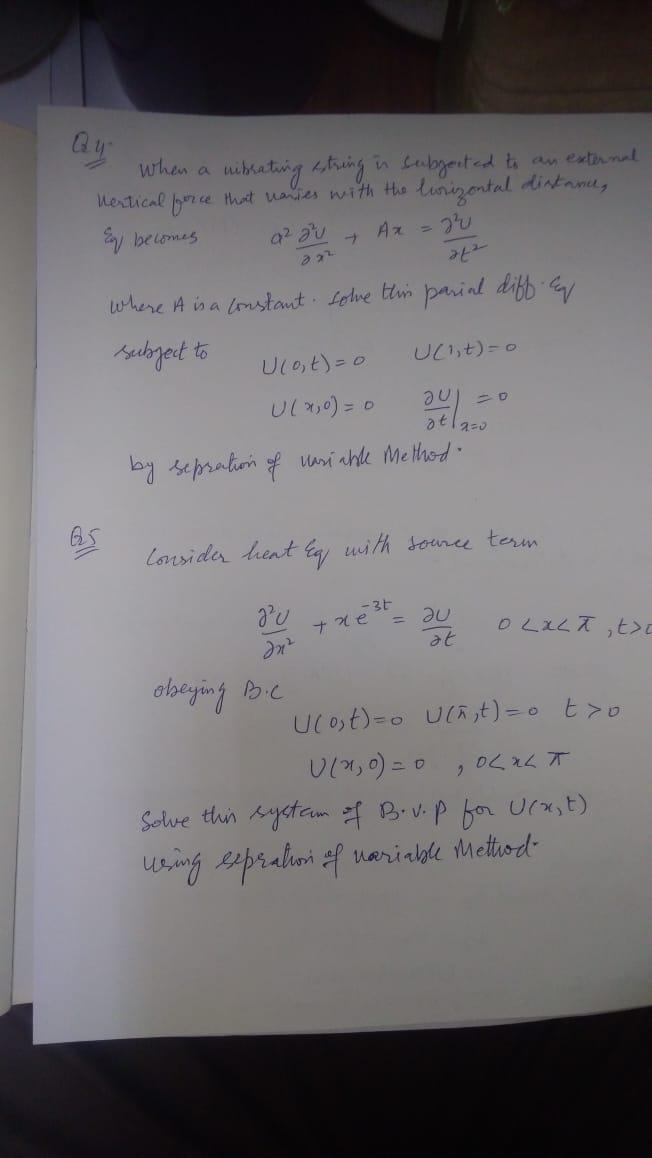 Q4.
When a vibrating string is subjected to an external
vertical force that varies with the horizontal distance,
Eq becomes a² ∂²U/∂x² + Ax = ∂²U/∂t²
where A is a constant. Solve this parial diff. Eq
subject to U(0,t)=0 U(1,t)=0
U(x,0)=0 ∂U/∂t|x=0 =0
by sepration of variable Method.
Q5
Consider heat Eq with source term
∂²U/∂x² + xe^-3t = ∂U/∂t 0<x<π, t>0
obeying B.C
U(0,t)=0 U(π,t)=0 t>0
U(x,0)=0 , 0<x<π
Solve this system of B.V.P for U(x,t)
using sepration of variable Method.